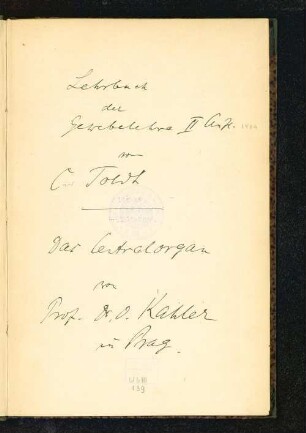 Lehrbuch
der
Gewebelehre II Aufl. 1884
von
C. Toldt
Das Centralorgan
von
Prof. Dr. O. Kahler
in Prag.
139